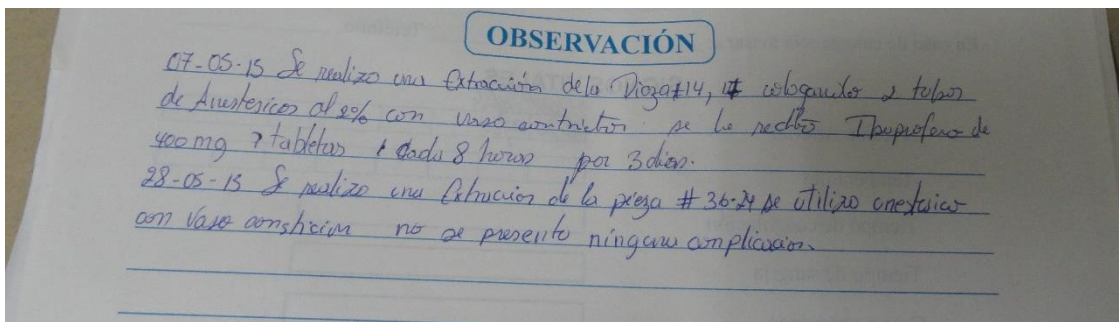 OBSERVACIÓN
07-05-15 Se realizo una Extracción dela Pieza #14, colocando 2 tubos
de Anestesicos al 2% con vaso contrictor se le recetó Ibuprofeno de
400 mg tabletas 1 cada 8 horas por 3 dias.
28-05-15 Se realizo una Extraccion de la pieza # 36-24 se utilizo anestesico
con Vaso no se presento ninguna complicacion.